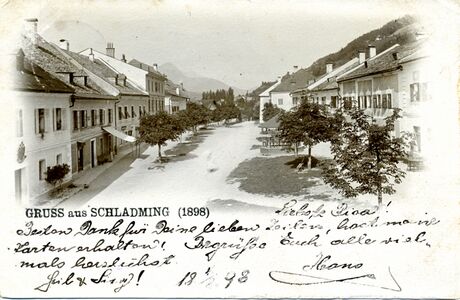 GRUSS aus SCHLADMING (1898)
Liebste
Besten Dank für Deine lieben Zeilen,
Karten erhalten! Begrüße Euch alle viel-
mals herzlichst
Heil u. Sieg! 18 98 Hans